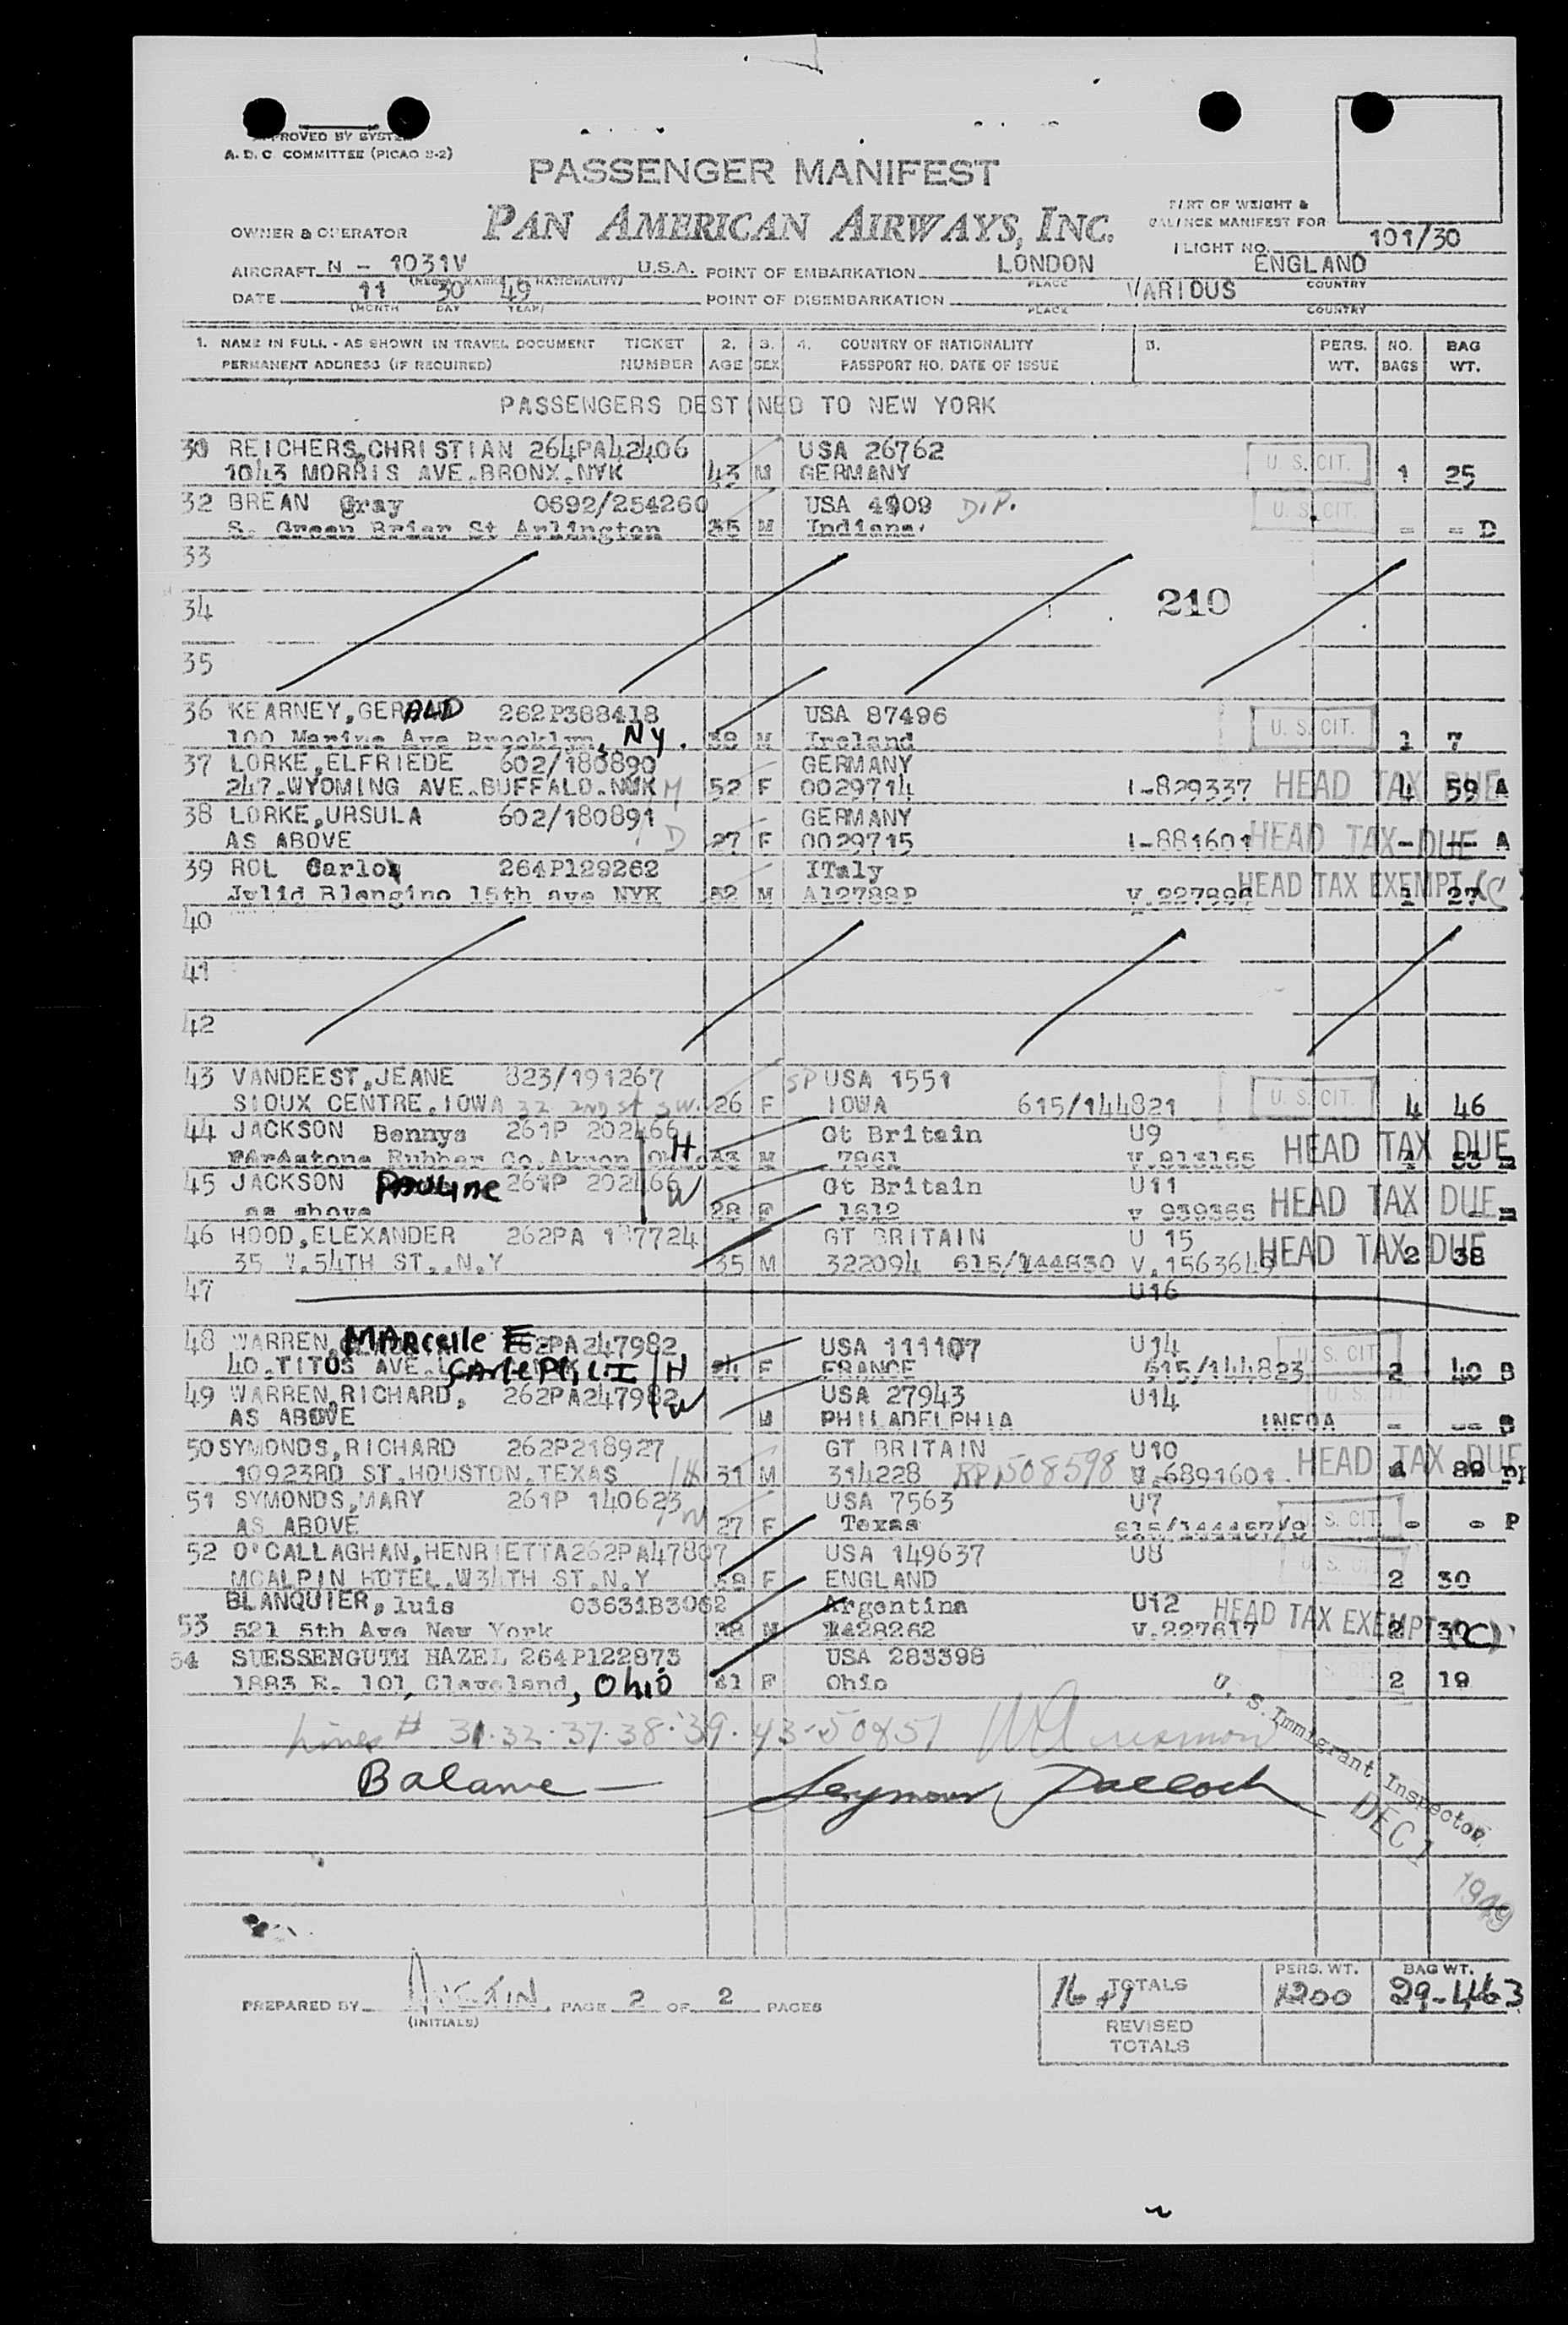 APPROVED BY SYSTEM
A. D. C. COMMITTEE (PICAO S-2)
PASSENGER MANIFEST
PAN AMERICAN AIRWAYS, INC.
PART OF WEIGHT &
BALANCE MANIFEST FOR
OWNER & OPERATOR
FLIGHT NO. 101/30
AIRCRAFT N - 1031V U.S.A. POINT OF EMBARKATION LONDON ENGLAND
(REG. MARK & NATIONALITY) PLACE COUNTRY
DATE 11 30 49 POINT OF DISEMBARKATION VARIOUS
(MONTH DAY YEAR) PLACE COUNTRY
1. NAME IN FULL - AS SHOWN IN TRAVEL DOCUMENT TICKET 2. 3. 4. COUNTRY OF NATIONALITY 5. PERS. NO. BAG
PERMANENT ADDRESS (IF REQUIRED) NUMBER AGE SEX PASSPORT NO. DATE OF ISSUE WT. BAGS WT.
PASSENGERS DESTINED TO NEW YORK
30 REICHERS,CHRISTIAN 264PA42406 USA 26762 U. S. CIT.
1043 MORRIS AVE.BRONX.NYK 43 M GERMANY 1 25
32 BREAN Gray 0692/254260 USA 4909 DIP. U. S. CIT.
S. Green Brier St Arlington 35 M Indiana - - D
33
34 210
35
36 KEARNEY,GERALD 262P388418 USA 87496 U. S. CIT.
100 Marine Ave Brooklyn, NY. 38 M Ireland 1 7
37 LORKE,ELFRIEDE 602/180890 GERMANY
247.WYOMING AVE.BUFFALO.NYK M 52 F 0029714 I-829337 HEAD TAX DUE 4 59 A
38 LORKE,URSULA 602/180891 GERMANY
AS ABOVE D 27 F 0029715 I-881601 HEAD TAX DUE - -- A
39 ROL Carlo 264P129262 ITaly
Jvlid Blengino 15th ave NYK 52 M A12788P V.227896 HEAD TAX EXEMPT (C) 1 27
40
41
42
43 VANDEEST,JEANE 823/191267 SP USA 1551
SIOUX CENTRE.IOWA 32 2nd St SW. 26 F IOWA 615/144821 U. S. CIT. 4 46
44 JACKSON Bennys 261P 202466 H Gt Britain U9
Firestone Rubber Co.Akron Ohio 33 M 7961 V.813155 HEAD TAX DUE 53
45 JACKSON PAULINE 261P 202466 W Gt Britain U11
as above 28 F 1612 v 939365 HEAD TAX DUE -
46 HOOD,ELEXANDER 262PA 7724 GT BRITAIN U 15
35 W.54TH ST..N.Y 35 M 322094 615/144830 V.1563649 HEAD TAX DUE 2 38
47 U16
48 WARREN, MARCELLE E 262PA247982 USA 111107 U14 U. S. CIT.
40.TITUS AVE. CARLE PL, L.I H F FRANCE 615/144823 2 40 B
49 WARREN,RICHARD. 262PA247982 W USA 27943 U14 U. S.
AS ABOVE M PHILADELPHIA INFOA - -- B
50 SYMONDS,RICHARD 262P218927 GT BRITAIN U10
10923RD ST.HOUSTON.TEXAS H 31 M 314228 RP1508598 V.6891601 HEAD TAX DUE 4 89
51 SYMONDS,MARY 261P 140623 W USA 7563 U7
AS ABOVE 27 F Texas 615/144457/8 S. CIT. - - P
52 O'CALLAGHAN,HENRIETTA 262PA47807 USA 149637 U8
MCALPIN HOTEL.W34TH ST.N.Y F ENGLAND 2 30
BLANQUIER, luis 03631B3062 Argentina U12
53 521 5th Ave New York 38 M 428262 V.227617 HEAD TAX EXEMPT (C) 2 30
54 SUESSENGUTH HAZEL 264P122873 USA 283398
1883 E. 101, Cleveland, Ohio F Ohio 2 19
Lines # 31.32.37.38.39.43-50&51
Balance — Seymour
U. S. Immigrant Inspector,
DEC 1 1949
PREPARED BY PAGE 2 OF 2 PAGES
(INITIALS)
TOTALS PERS. WT. BAG WT.
16 1200 29-463
REVISED
TOTALS